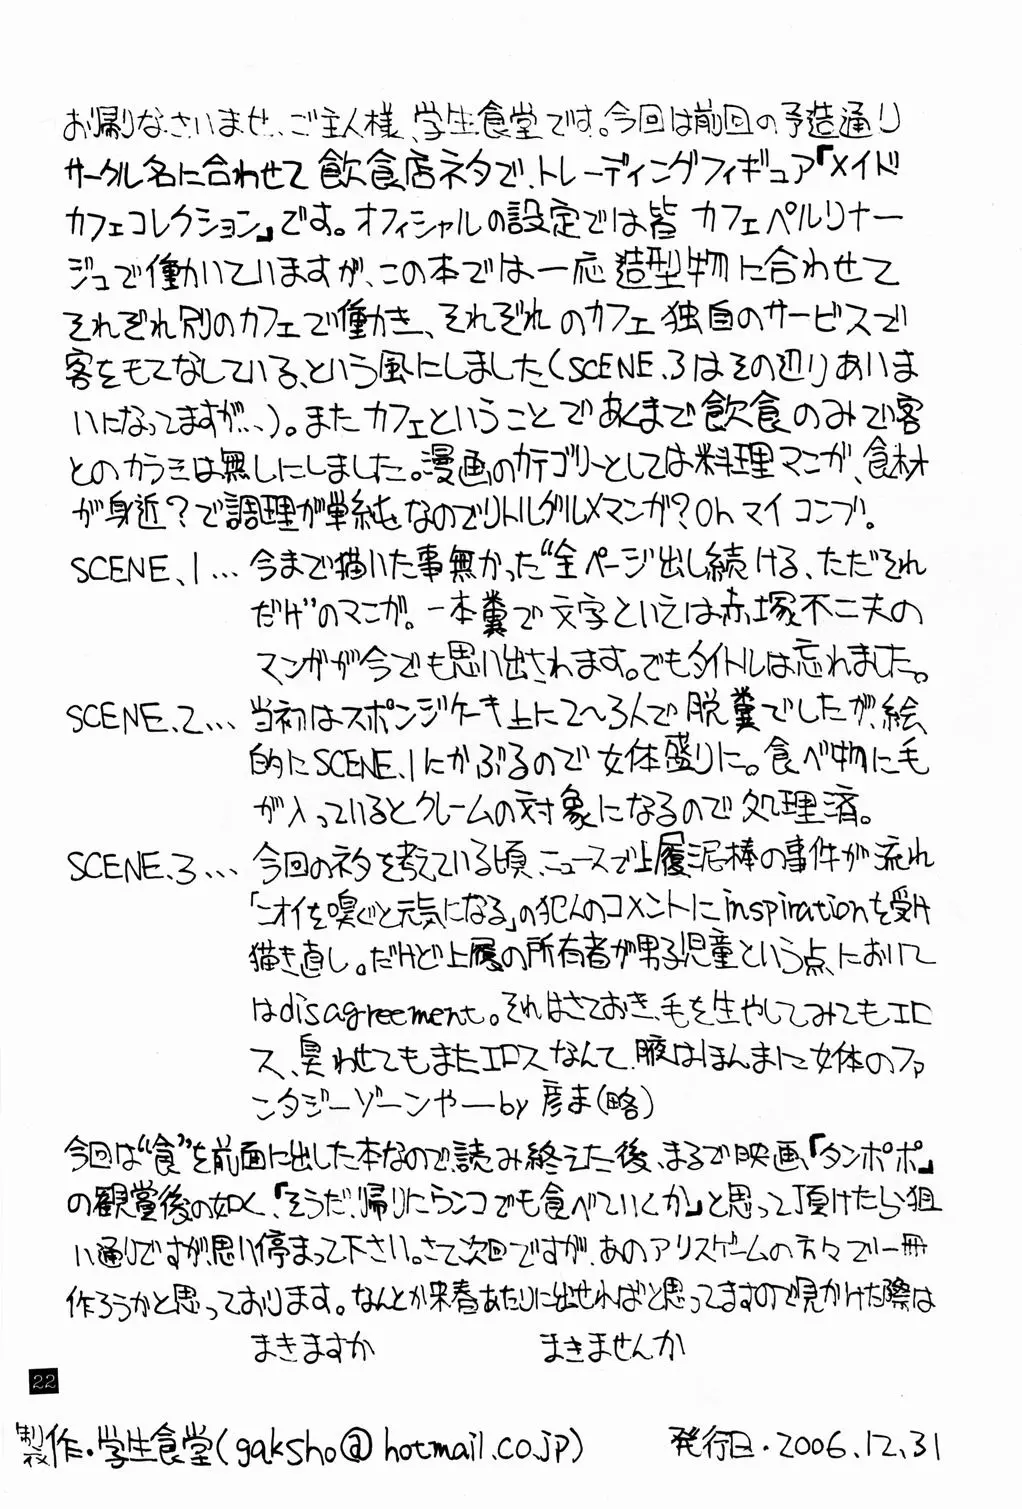 お帰りなさいませ、ご主人様、学生食堂です。今回は前回の予造通り
サークル名に合わせて飲食店ネタで、トレーディングフィギュア『メイド
カフェコレクション』です。オフィシャルの設定では皆 カフェペルリナー
ジュで働いていますが、この本では一応造型物に合わせて
それぞれ別のカフェで働き、それぞれのカフェ独自のサービスで
客をもてなしている、という風にしました(SCENE.3はその辺りあいま
いになってますが…)。またカフェということであくまで飲食のみで客
とのカラミは無しにしました。漫画のカテゴリーとしては料理マンガ、食材
が身近?で調理が単純なのでリトルグルメマンガ?Ohマイコンブ。
SCENE.1… 今まで描いた事無かった“全ページ出し続ける、ただそれ
だけ”のマンガ。一本糞で文字といえば赤塚不二夫の
マンガが今でも思い出されます。でもタイトルは忘れました。
SCENE.2… 当初はスポンジケーキ上に2〜3人で脱糞でしたが、絵
的にSCENE.1にかぶるので女体盛りに。食べ物に毛
が入っているとクレームの対象になるので処理済。
SCENE.3… 今回のネタを考えている頃、ニュースで上履泥棒の事件が流れ
「ニオイを嗅ぐと元気になる」の犯人のコメントにinspirationを受け
描き直し。だけど上履の所有者が男子児童という点、において
はdisagreement。それはさておき、毛を生やしてみてもエロ
ス、臭わせてもまたエロスなんて、腋はほんまに女体のファ
ンタジーゾーンやーby 彦ま(略)
今回は“食”を前面に出した本なので、読み終えた後、まるで映画、『タンポポ』
の観賞後の如く、「そうだ、帰りにウンコでも食べていくか」と思って頂けたら狙
い通りですが、思い停まって下さい。さて次回ですが、あのアリスゲームの方々で一冊
作ろうかと思っております。なんとか来春あたりに出せればと思ってますので見かけた際は
まきますか まきませんか
22
製作・学生食堂(gaksho@hotmail.co.jp) 発行日・2006.12.31